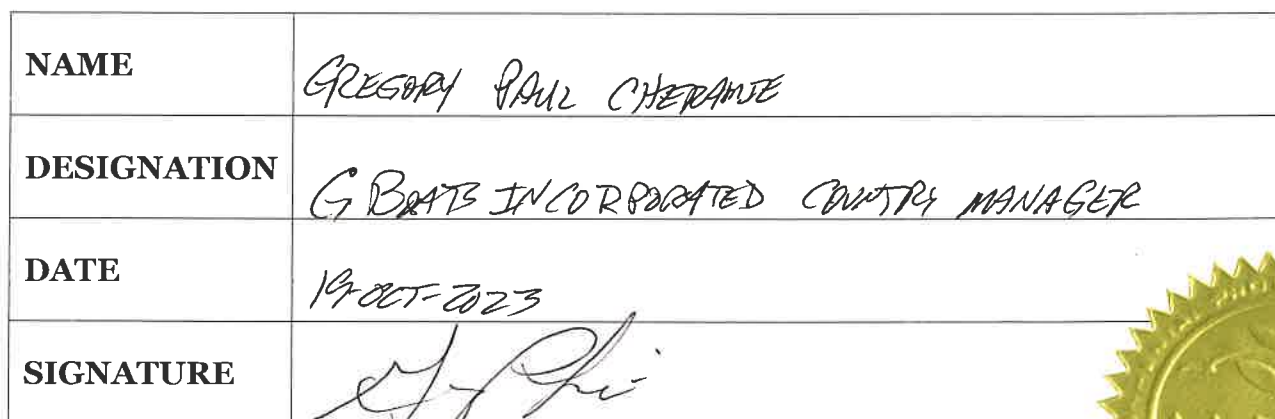 NAME GREGORY PAUL CHERAMIE
DESIGNATION G BOATS INCORPORATED COUNTRY MANAGER
DATE 19-OCT-2023
SIGNATURE